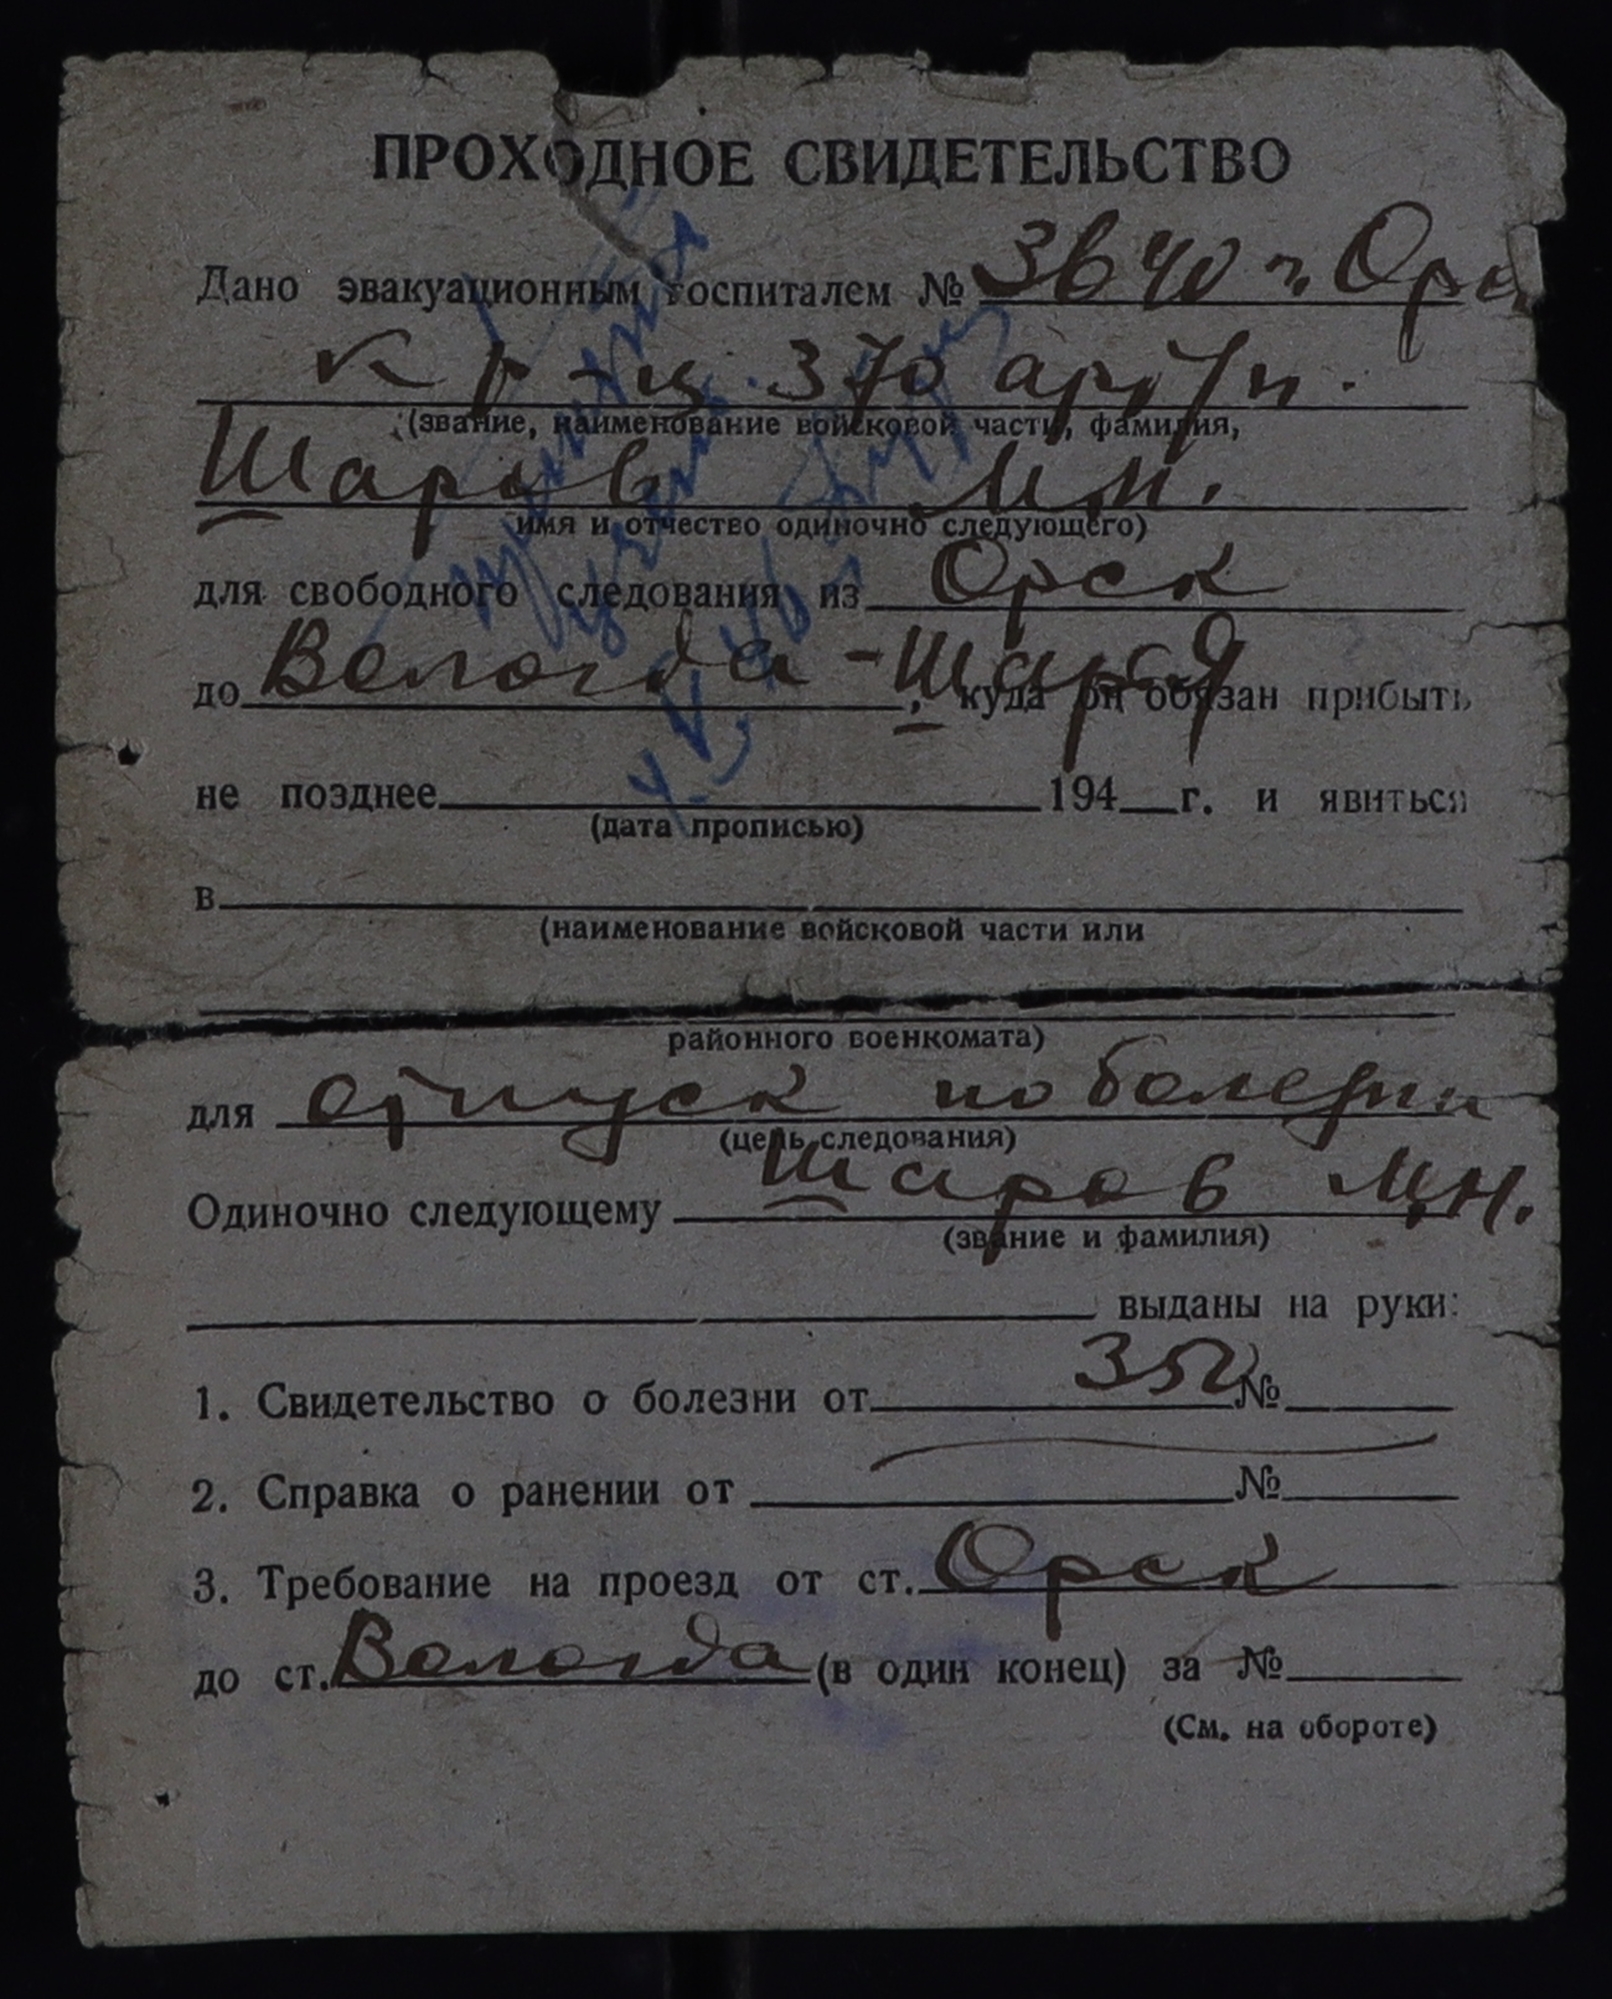 ПРОХОДНОЕ СВИДЕТЕЛЬСТВО
Дано эвакуационным госпиталем № 3640 г. Орск
кр-ц 370 арт/п.
(звание, наименование войсковой части, фамилия,
Шаров М.Н.
имя и отчество одиночно следующего)
для свободного следования из Орск
до Вологда - Шарья, куда он обязан прибыть
не позднее 194 г. и явиться
(дата прописью)
в
(наименование войсковой части или
районного военкомата)
для отпуск по болезни
(цель следования)
Одиночно следующему Шаров М.Н.
(звание и фамилия)
выданы на руки:
1. Свидетельство о болезни от 352 №
2. Справка о ранении от №
3. Требование на проезд от ст. Орск
до ст. Вологда (в один конец) за №
(См. на обороте)